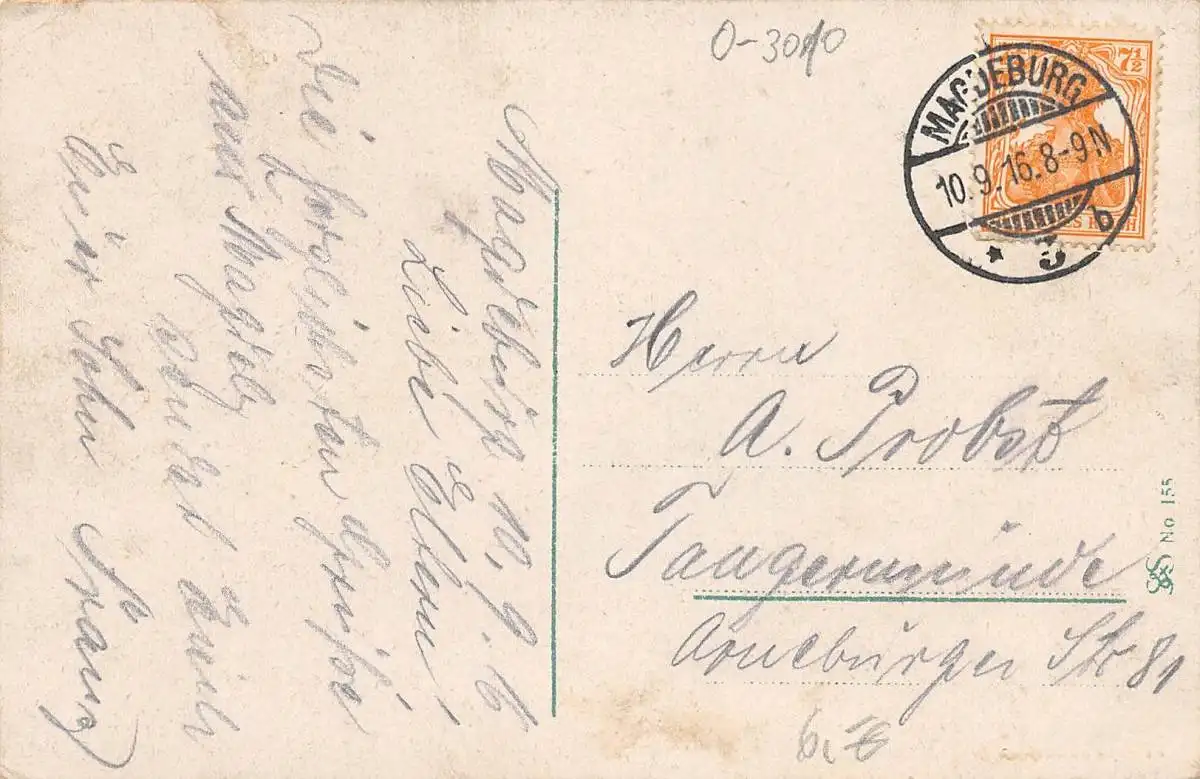 Magdeburg 10.9.16
Liebe Eltern!
Die herzlichsten Grüße
aus Magdeb
sendet Euch
Euer Sohn Franz
O-3010
7½
MAGDEBURG
10.9.16.8-9N
* 3 b
Herrn
A. Probst
Tangermünde
Arneburger Str 81
No 155